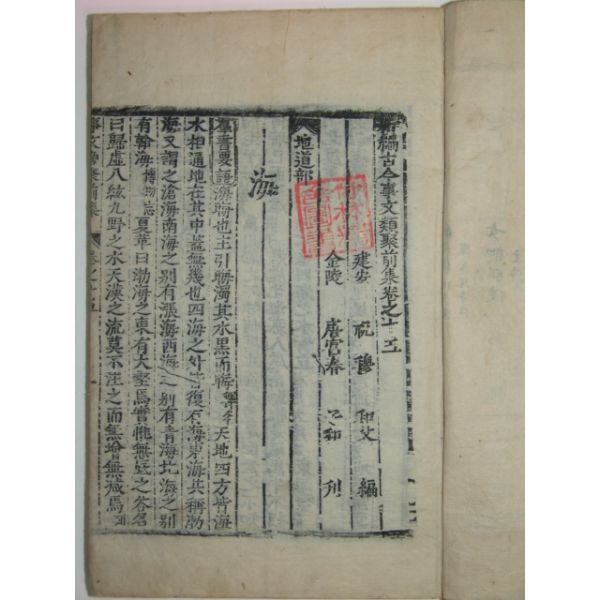 新編古今事文類聚前集卷之十五
建安 祝穆 和父 編
金陵 唐富春 子和 刊
地道部
海
羣書要語海晦也主引晦濁其水黑而晦 天地四方皆海
水相通地在其中蓋無幾也四海之外皆復有海東海共稱渤
海又謂之滄海南海之別有漲海西海之別有青海北海之別
有瀚海博物志夏革曰渤海之東有大壑焉實惟無底之谷名
曰歸虛八紘九野之水天漢之流莫不注之而無增無减焉列
事文類聚前集 卷之十五